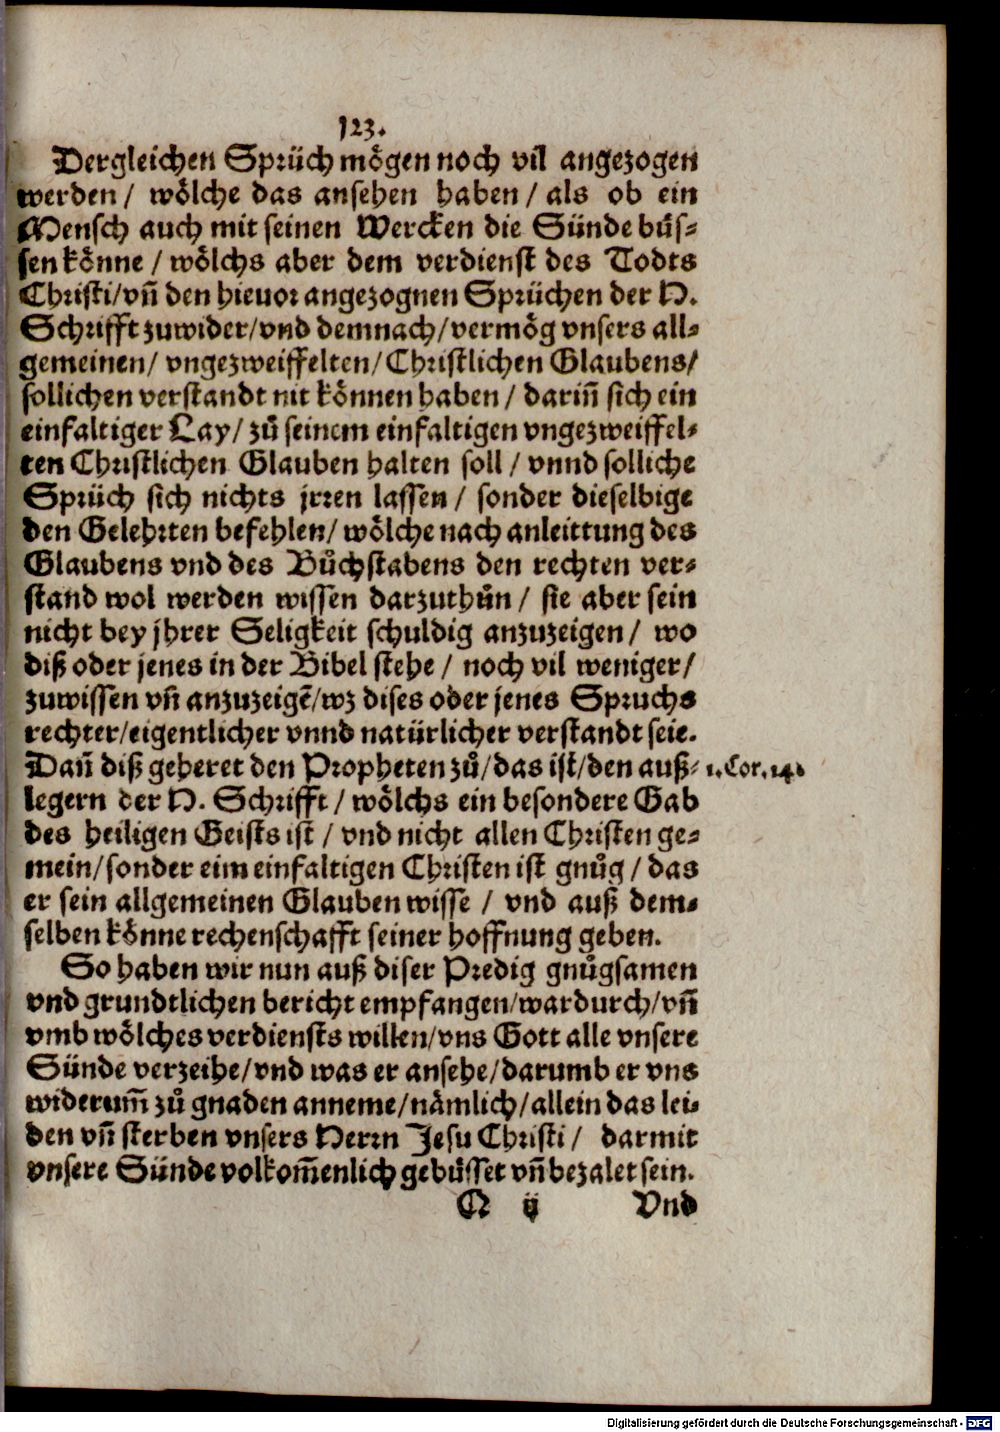 123.
Dergleichen Sprüch mögen noch vil angezogen
werden/ wölche das ansehen haben/ als ob ein
Mensch auch mit seinen Wercken die Sünde büs-
sen könne/ wölchs aber dem verdienst des Todts
Christi/vñ den hieuor angezognen Sprüchen der H.
Schrifft zuwider/vnd demnach/vermög vnsers all-
gemeinen/ vngezweiffelten/Christlichen Glaubens/
sollichen verstandt nit können haben/ dariñ sich ein
einfaltiger Lay/ zů seinem einfaltigen vngezweiffel-
ten Christlichen Glauben halten soll/ vnnd solliche
Sprüch sich nichts jrren lassen/ sonder dieselbige
den Gelehrten befehlen/ wölche nach anleittung des
Glaubens vnd des Bůchstabens den rechten ver-
stand wol werden wissen darzuthůn/ sie aber sein
nicht bey jhrer Seligkeit schuldig anzuzeigen/ wo
diß oder jenes in der Bibel stehe/ noch vil weniger/
zuwissen vñ anzuzeigē/wz dises oder jenes Spruchs
rechter/eigentlicher vnnd natürlicher verstandt seie.
Dañ diß geheret den Propheten zů/das ist/den auß- 1. Cor. 14.
legern der H. Schrifft/ wölchs ein besondere Gab
des heiligen Geists ist/ vnd nicht allen Christen ge-
mein/sonder eim einfaltigen Christen ist gnůg/ das
er sein allgemeinen Glauben wisse/ vnd auß dem-
selben könne rechenschafft seiner hoffnung geben.
So haben wir nun auß diser Predig gnůgsamen
vnd grundtlichen bericht empfangen/wardurch/vñ
vmb wölches verdiensts willen/vns Gott alle vnsere
Sünde verzeihe/vnd was er ansehe/darumb er vns
widerum̃ zů gnaden anneme/nämlich/allein das lei-
den vñ sterben vnsers Herrn Jesu Christi/ darmit
vnsere Sünde volkom̃enlich gebüsset vñ bezalet sein.
Q ij Vnd
Digitalisierung gefördert durch die Deutsche Forschungsgemeinschaft - DFG